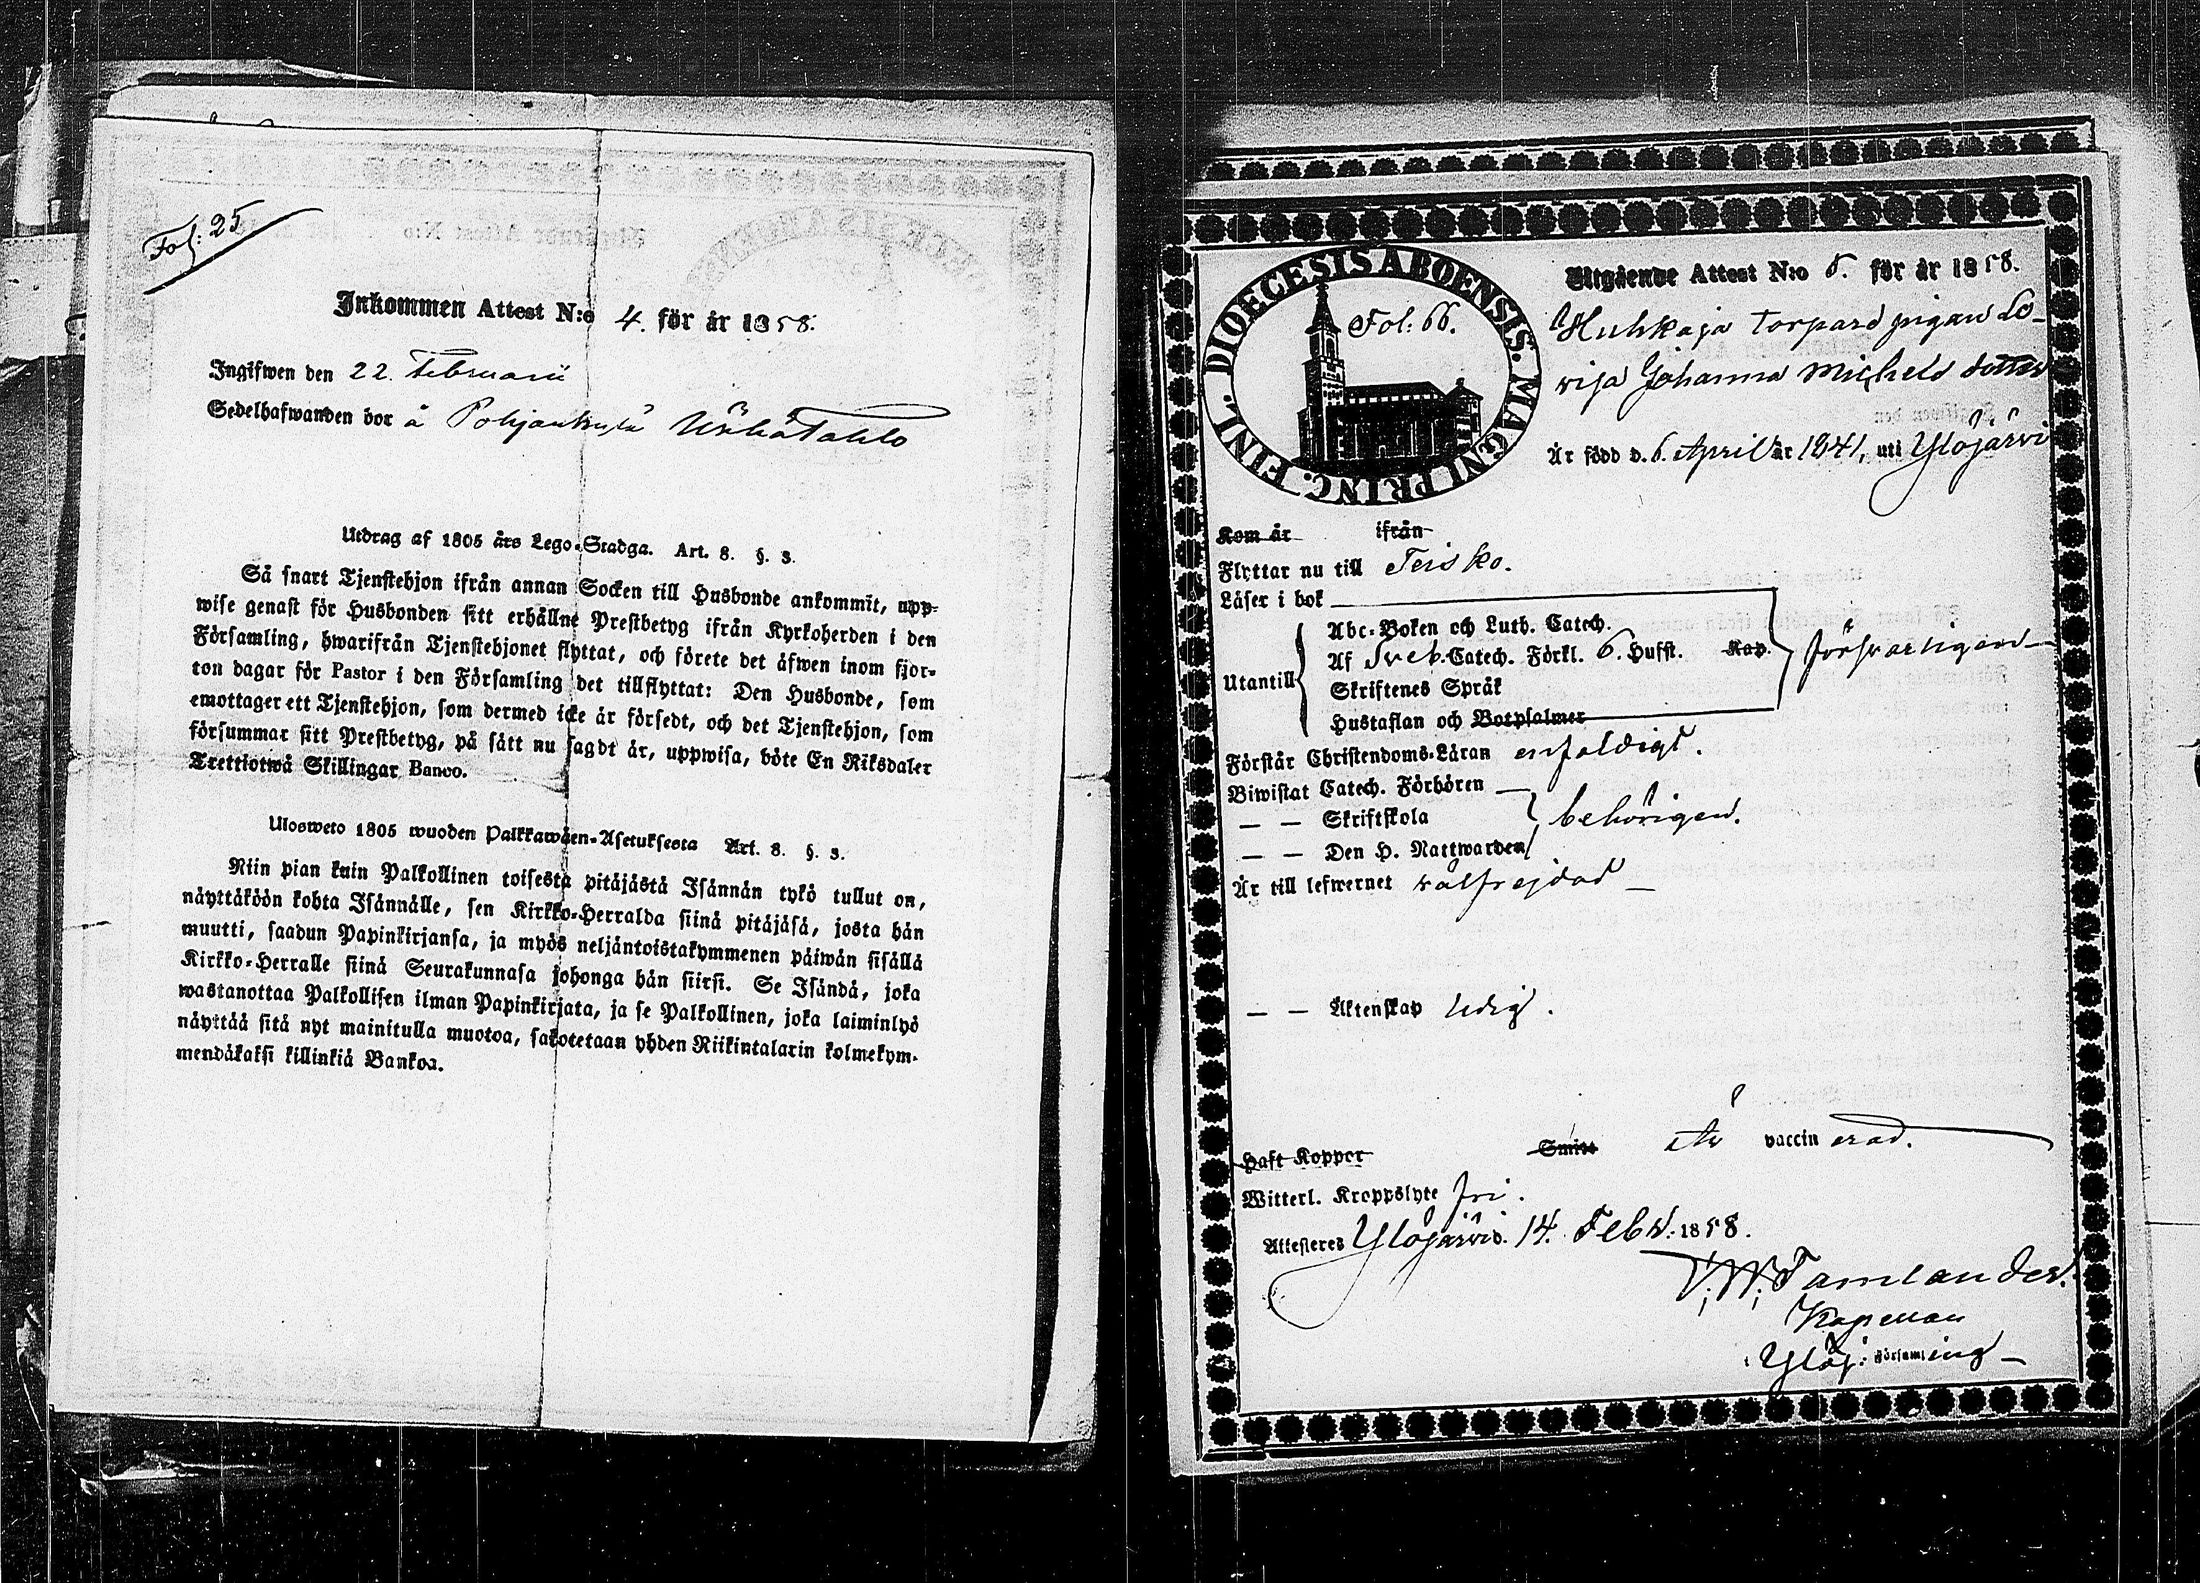 Fol: 25
Inkommen Attest N:o 4. för år 1858.
Ingifwen den 22. Februarii
Sedelhafwanden bor å Pohjankylä
Utdrag af 1805 års Lego-Stadga. Art. 8. §. 3.
Så snart Tjenstehjon ifrån annan Socken till Husbonde ankommit, upp-
wise genast för Husbonden sitt erhållne Prestbetyg ifrån Kyrkoherden i den
Församling, hwarifrån Tjenstehjonet flyttat, och förete det äfwen inom fjor-
ton dagar för Pastor i den Församling det tillflyttat: Den Husbonde, som
emottager ett Tjenstehjon, som dermed icke är försedt, och det Tjenstehjon, som
försummar sitt Prestbetyg, på sätt nu sagdt är, uppwisa, böte En Riksdaler
Trettiotwå Skillingar Banco.
Ulosweto 1805 wuoden Palkkawäen-Asetuksesta Art. 8. §. 3.
Niin pian kuin Palkollinen toisesta pitäjästä Isännän tykö tullut on,
näyttäköön kohta Isännälle, sen Kirkko-Herralda siinä pitäjäsä, josta hän
muutti, saadun Papinkirjansa, ja myös neljäntoistakymmenen päiwän sisällä
Kirkko-Herralle siinä Seurakunnasa johonga hän siirsi. Se Isändä, joka
wastanottaa Palkollisen ilman Papinkirjata, ja se Palkollinen, joka laiminlyö
näyttää sitä nyt mainitulla muotoa, sakotetaan yhden Riikintalarin kolmekym-
mendäkaksi killinkiä Bankoa.
DIOECESIS ABOENSIS. MAGNI PRINC. FINL.
Fol: 66.
Utgående Attest N:o 5. för år 1858.
Huhkaja Torpars pigan Lo-
wisa Johanna Michels dotter
Är född d. 6. April år 1841, uti Ylöjärvi
Kom år ifrån
Flyttar nu till Teisko.
Läser i bok
Abc-Boken och Luth. Catech.
Af Sveb. Catech. Förkl. 6. Hufst. Kap. försvarligen
Utantill
Skriftenes Språk
Hustaflan och Botpsalmer
Förstår Christendoms-Läran enfaldigt.
Biwistat Catech. Förhören
— — Skriftskola behörigen.
— — Den H. Nattwarden
Är till lefwernet wälfrejdad
— — Äktenskap ledig.
Haft Koppor Smitt är vaccinerad.
Witterl. Kroppslyte fri.
Attesteres Ylöjärvi d. 14. Febr. 1858.
Tamlander.
Kapellan
Ylöj: Församling